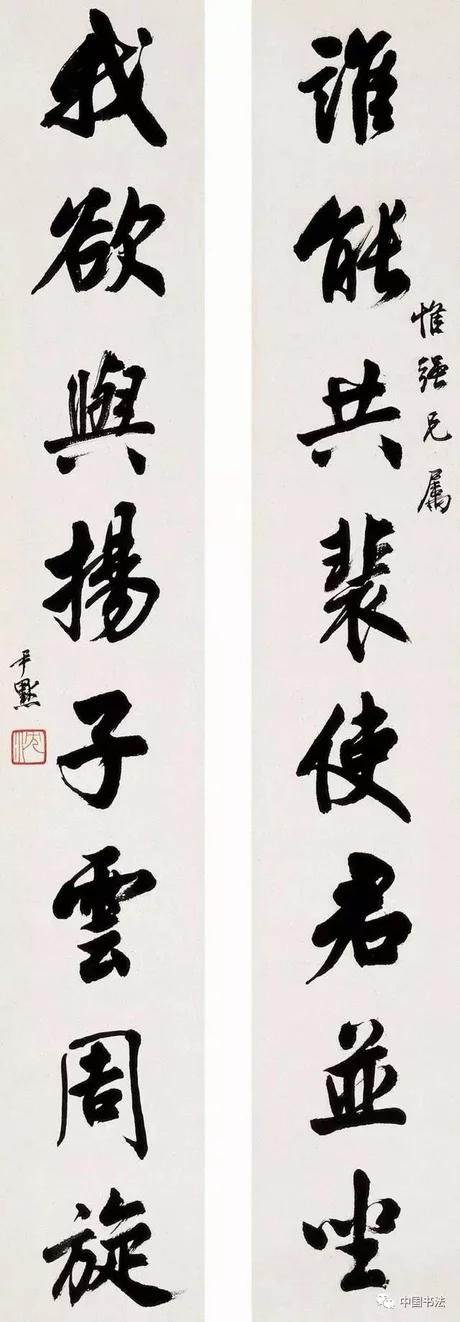 誰能共裴使君並坐
惟強兄屬
我欲與揚子雲周旋
尹默
沈
中国书法